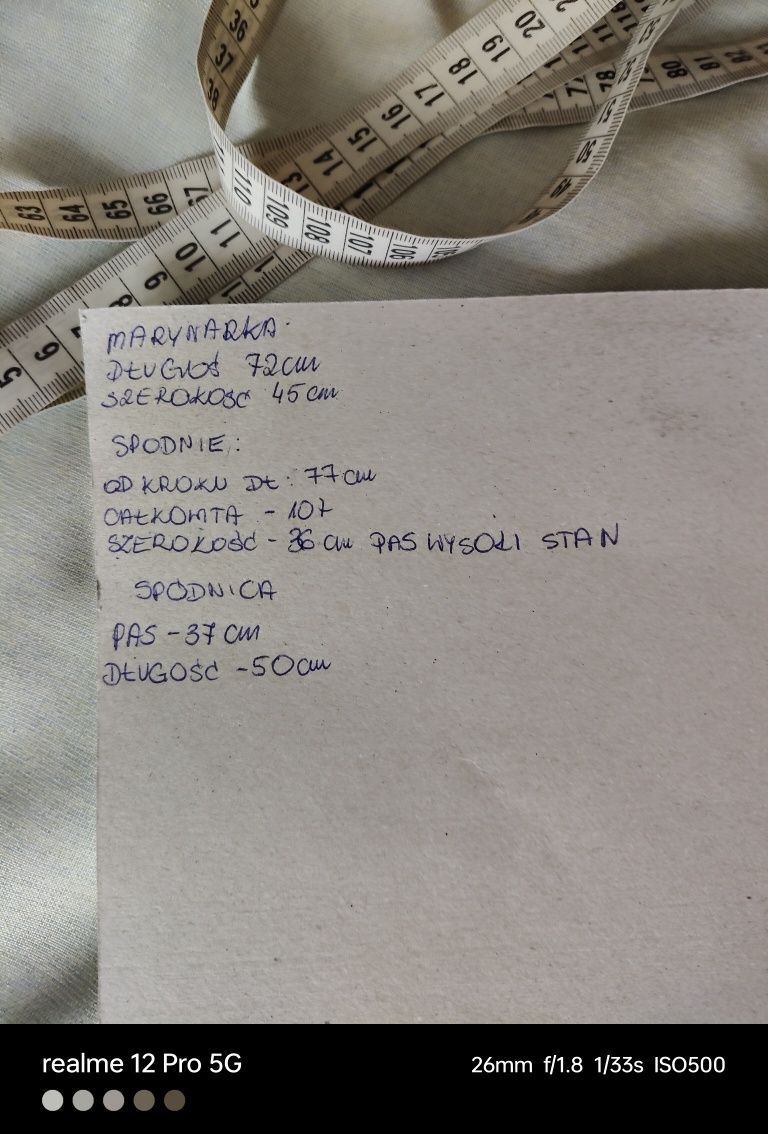 36
37
38
20
19
18
17
16
15
14
13
11
10
9
8
7
6
5
63
64
65
66
67
110
109
108
107
106
78
80
81
82
50
49
MARYNARKA.
DŁUGIOŚ 72cm
SZEROKOŚĆ 45 cm
SPODNIE:
OD KROKU DŁ. 77 cm
CAŁKOWITA - 107
SZEROKOŚĆ - 36 cm PAS WYSOKI STAN
SPÓDNICA
PAS - 37 cm
DŁUGOŚĆ - 50 cm
realme 12 Pro 5G
26mm f/1.8 1/33s ISO500